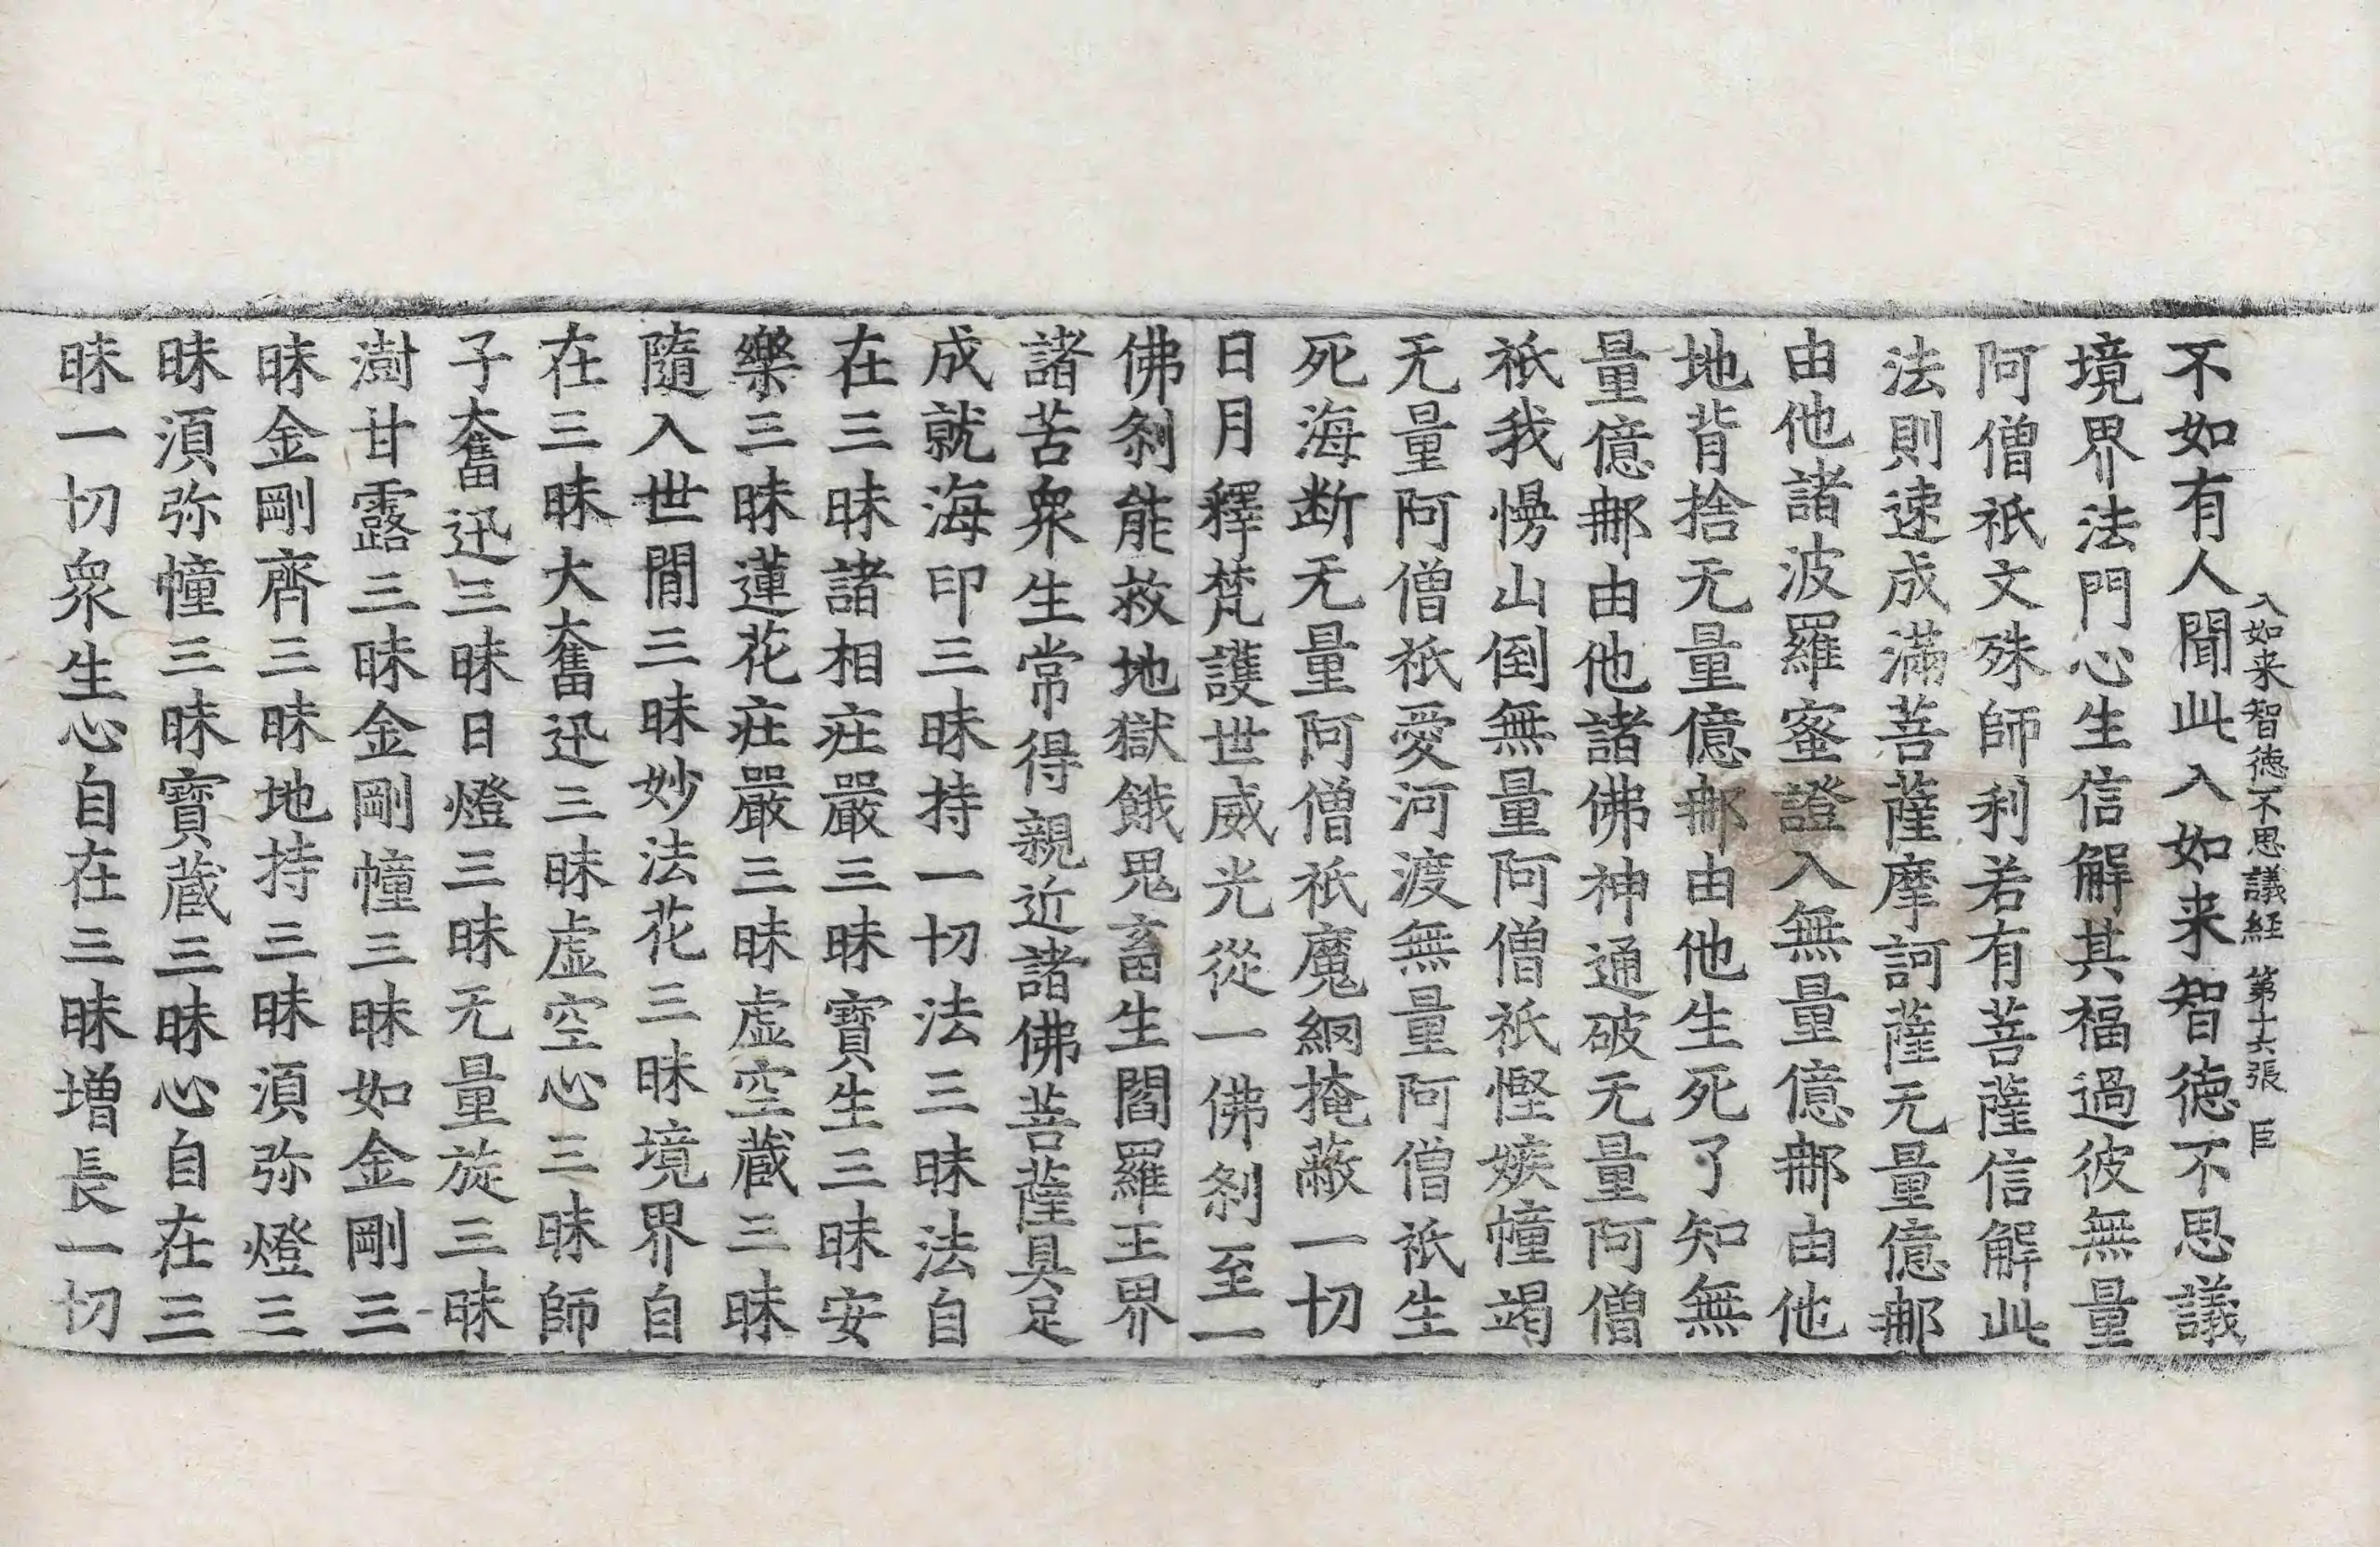 入如来智徳不思議経 第十六張 臣
不如有人聞此入如来智徳不思議
境界法門心生信解其福過彼無量
阿僧祇文殊師利若有菩薩信解此
法則速成滿菩薩摩訶薩无量億郍
由他諸波羅蜜證入無量億郍由他
地背捨无量億郍由他生死了知無
量億郍由他諸佛神通破无量阿僧
祇我慢山倒無量阿僧祇慳嫉幢竭
无量阿僧祇愛河渡無量阿僧祇生
死海断无量阿僧祇魔網掩蔽一切
日月釋梵護世威光從一佛刹至一
佛刹能救地獄餓鬼畜生閻羅王界
諸苦衆生常得親近諸佛菩薩具足
成就海印三昧持一切法三昧法自
在三昧諸相庄嚴三昧寶生三昧安
樂三昧蓮花庄嚴三昧虚空蔵三昧
隨入世間三昧妙法花三昧境界自
在三昧大奮迅三昧虚空心三昧師
子奮迅三昧日燈三昧无量旋三昧
澍甘露三昧金剛幢三昧如金剛三
昧金剛齊三昧地持三昧須弥燈三
昧須弥幢三昧寶蔵三昧心自在三
昧一切衆生心自在三昧增長一切